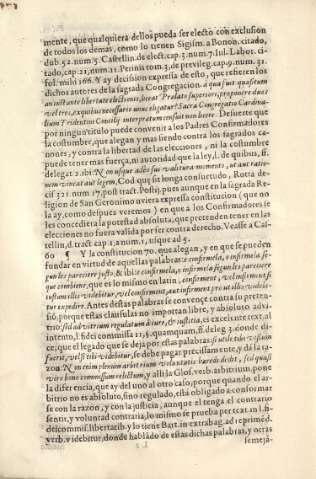 mente, que qualquiera dellos pueda ser electo con exclusion
de todos los demas, como lo tienen Sigism. a Bonon. citado,
dub. 52. num. 5. Castellin. de elect. cap. 3. num. 7. Iul. Labor. ci-
tado, cap. 21. num. 21. Peirin. tom. 3. de previleg. cap. 9. num. 31.
fol. mihi 166. Y ay decision expressa de esto, que refieren los
dichos autores de la sagrada Congregacion. a qua sui quæsitum
an instante libertate electionis, liceat Prælato superiori, proponere duos
vel tres, ex quibus necessario unus eligatur? Sacra Congregatio Cardina-
lium Tridentini Concilij interpretum censuit non licere. De suerte que
por ningun titulo puede convenir a los Padres Confirmadores
la costumbre, que alegan y mas siendo contra los sagrados ca-
nones, y contra la libertad de las elecciones, ni la costumbre
puede tener mas fuerça, ni autoridad que la ley, l. de quibus, ff.
delegat. 2. ibi: Non usque adeo sui valitura momento, ut aut ratio-
nem vincat aut legem, Cod. quæ sit longa consuetudo, Rota de-
cis. 321. num. 17. post tract. Posthij, pues aunque en la sagrada Re-
ligion de San Geronimo uviera expressa constitucion (que no
la ay, como despues veremos) en que a los Confirmadores se
les concediera la potestad absoluta, que pretenden tener en las
elecciones no fuera valida por ser contra derecho. Vease a Cas-
tellin. d. tract. cap. 13. num. 1. usque ad 5.
60 ¶ Y la constitucion 70. que alegan, y en que se pueden
fundar en virtud de aquellas palabras: o confirmela, o infirmela se-
gun les pareciere justo, & ibi: e confirmela, o infirmela segun les pareciere
que conviene, que es lo mismo en latin, confirment, vel infirment, si
justum illis videbitur, vel confirment, aut infirment prout illis videbi-
tur expedire. Antes destas palabras se convence contra su preten-
sió, porque estas clausulas no importan libre, y absoluto alve-
drio, sed arbitrium regulatum à iure, & iustitia, es excelente text. al
intento, l. fidei commissa 11. §. quamquam, ff. deleg. 3. donde di-
ce, que el legado que se deja por estas palabras: si utile tibi visum
fuerit, vel si tibi videbitur, se debe pagar precissamente, y dà la ra-
zon: Non enim plenum arbitrium voluntatis hæredi dedit, sed quasi
viro bono commissum relictum, y alli la Glos. verb. arbitrium, pone
la diferencia, que ay del uno al otro caso, porque quando el ar-
bitrio no es absoluto, sino regulado, està obligado a conformar
se con la razon, y con la justicia, aunque el tenga el contrario
sentir, y voluntad contraria, lo mismo se prueba per text. in l. fi-
deicommiss. libertatib. y lo tiene Bart. in extravag. ad reprimẽd.
verb. videbitur, donde hablādo de estas dichas palabras, y otras
semejā-